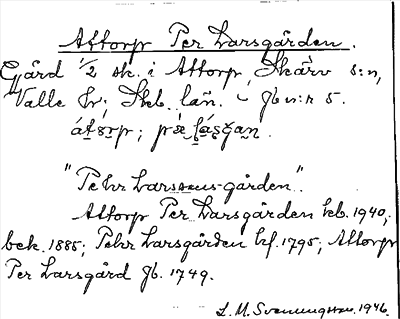 Attorp Per Larsgården.
Gård 1/2 sk. i Attorp, Skärv s:n,
Valle hr; Skb. län. Gb n:r 5.
"Pehr Larssons-gården".
Attorp Per Larsgården kb. 1940;
bek. 1885; Pehr Larsgården hf. 1795; Attorp
Per Larsgård Jb. 1749.
L. M. Svenungsson. 1946.